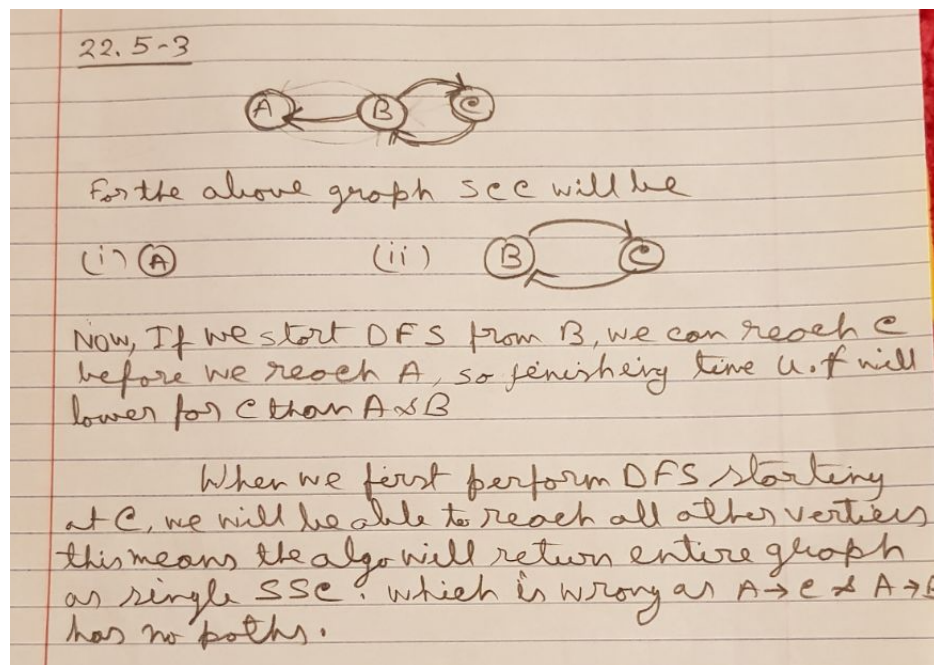 22.5-3
A B C
For the above graph SCC will be
(i) A (ii) B C
Now, If we start DFS from B, we can reach C
before we reach A, so finishing time u.f will
lower for C than A & B
When we first perform DFS starting
at C, we will be able to reach all other vertices
this means the algo will return entire graph
as single SSC. which is wrong as A→C & A→B
has no paths.